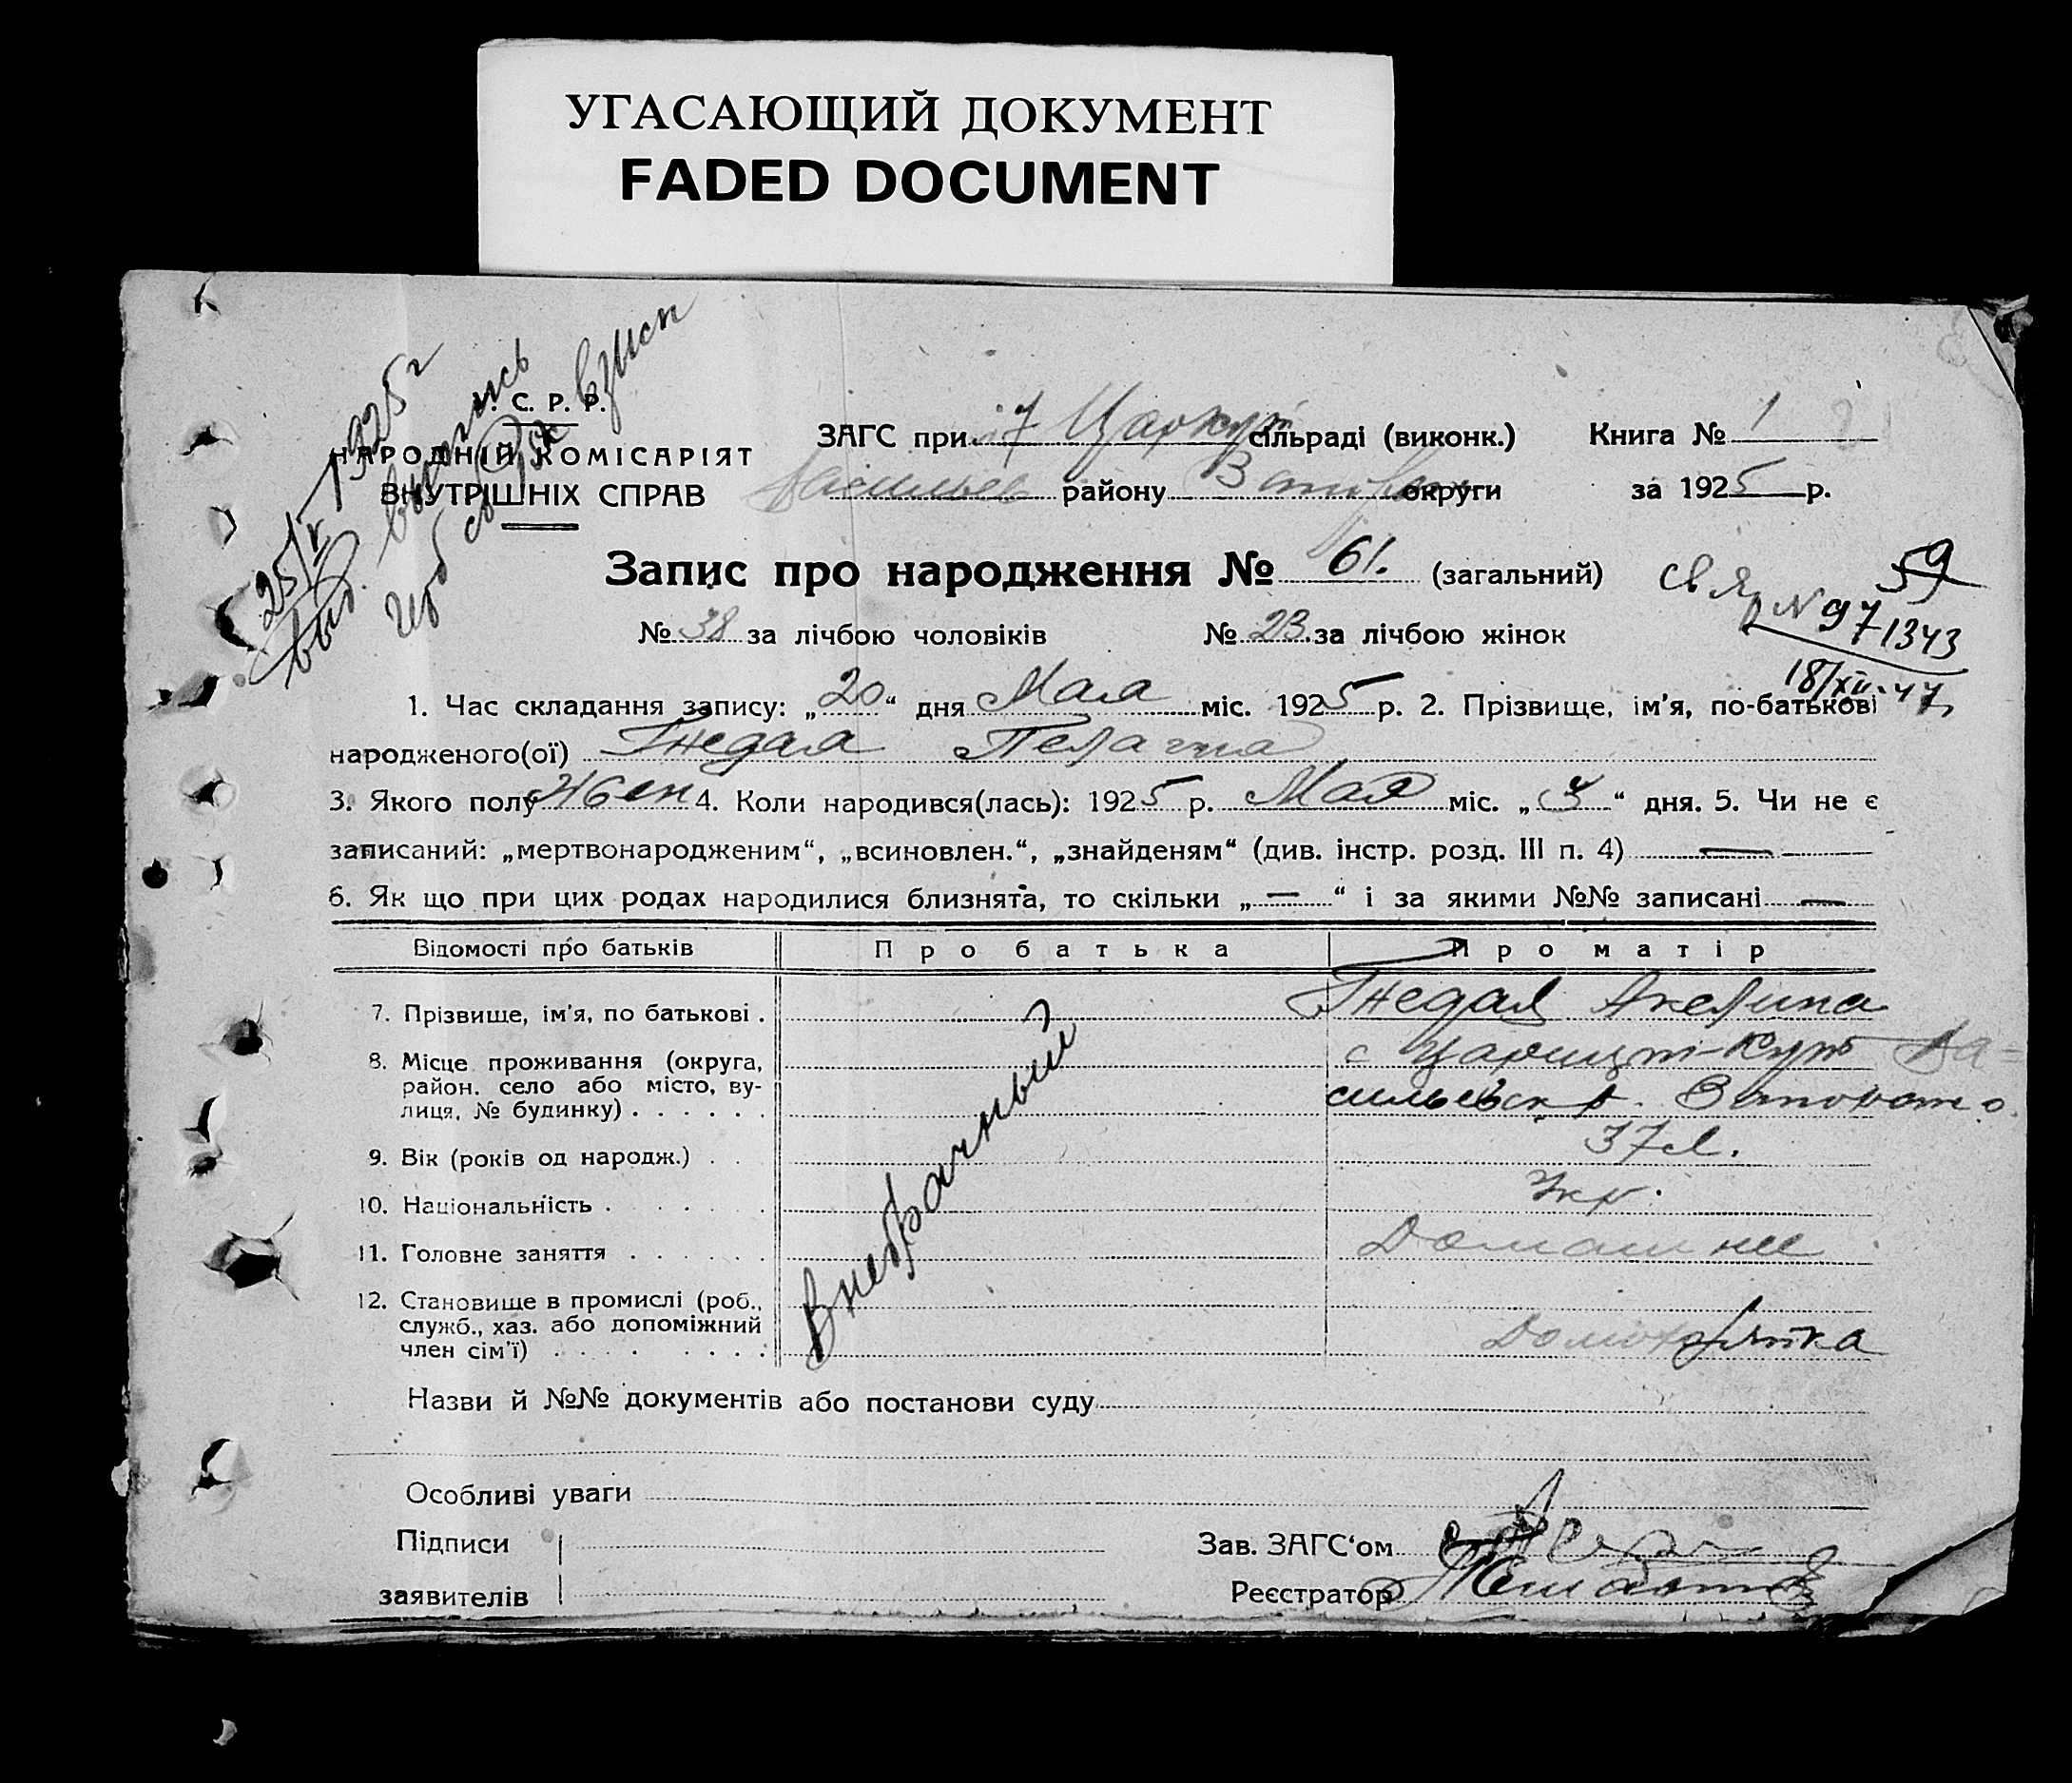 УГАСАЮЩИЙ ДОКУМЕНТ
FADED DOCUMENT
С. Р. Р.
НАРОДНІЙ КОМІСАРІЯТ
ВНУТРІШНІХ СПРАВ
25/V 1925 г
выпись
взыск
ЗАГС при Царкут сільраді (виконк.) Книга № 1
району округи за 1925 р.
Запис про народження № 61. (загальний)
59
№ 38 за лічбою чоловіків № 23 за лічбою жінок
N 971343
18/XII-47
1. Час складання запису: „20“ дня Мая міс. 1925 р. 2. Прізвище, ім'я, по-батькові
народженого(ої) Гнедая Пелагия
3. Якого полу Жен 4. Коли народився(лась): 1925 р. Мая міс. „ “ дня. 5. Чи не є
записаний: „мертвонародженим“, „всиновлен.“, „знайденям“ (див. інстр. розд. III п. 4) —
6. Як що при цих родах народилися близнята, то скільки „—“ і за якими №№ записані —
Відомості про батьків Про батька Про матір
7. Прізвище, ім'я, по батькові . Гнедая Акелина
8. Місце проживання (округа, с Царицын-Кут Ва=
район. село або місто, ву-
лиця, № будинку) . . . . . . сильевск р.
9. Вік (років од народж.) . . 37 л.
10. Національність . . . . . . Укр.
11. Головне заняття . . . . . . Домашнее
12. Становище в промислі (роб.,
служб., хаз. або допоміжний
член сім'ї) . . . . . . . . Домохозяйка
Внебрачный
Назви й №№ документів або постанови суду
Особливі уваги
Підписи Зав. ЗАГС‘ом
заявителів Реєстратор